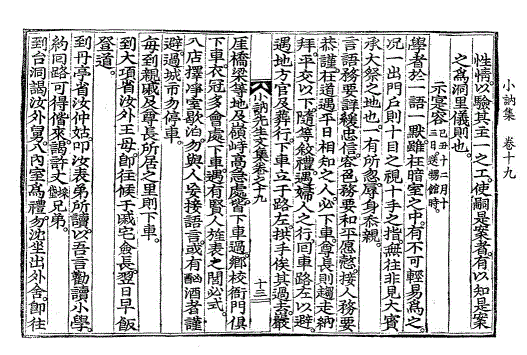 小訥集 卷十九
性情以驗其主一之工使嗣是案者有以知是案
之爲洞里儀則也
示寔容 己丑十二月十
日送館時
學者於一語一默雖在暗室之中有不可輕易爲之
况一出門戶則十目之視十手之指無往非見大賓
承大祭之地也一有所忽辱身忝親
言語務要詳緩忠信容色務要和平愿慤接人務要
恭謹在道遇平日相知之人必下車尊長則趨走納
拜平交以下隨等敘禮遇婦人之行回車路左以避
遇地方官及葬行下車立于路左拱手俟其過去嚴
小訥先生文集卷之十九 十三
厓橋梁等地及嶺峙高急處皆下車過鄕校衙門俱
下車衣冠多會處下車遇有賢人旌表之閭必式
入店擇淨室歇泊勿與人妄接語言或有酗酒者謹
避過城市勿停車
每到親戚及尊長所居之里則下車
到大項省汝外王母卽往候于戚宅僉長翌日早飯
登道
到丹亭省汝仲姑叩汝表弟所讀以吾言勸讀小學
約回路可得偕來謁許丈兄弟
到台洞謁汝外舅入內室爲禮勿沈坐出外舍卽往